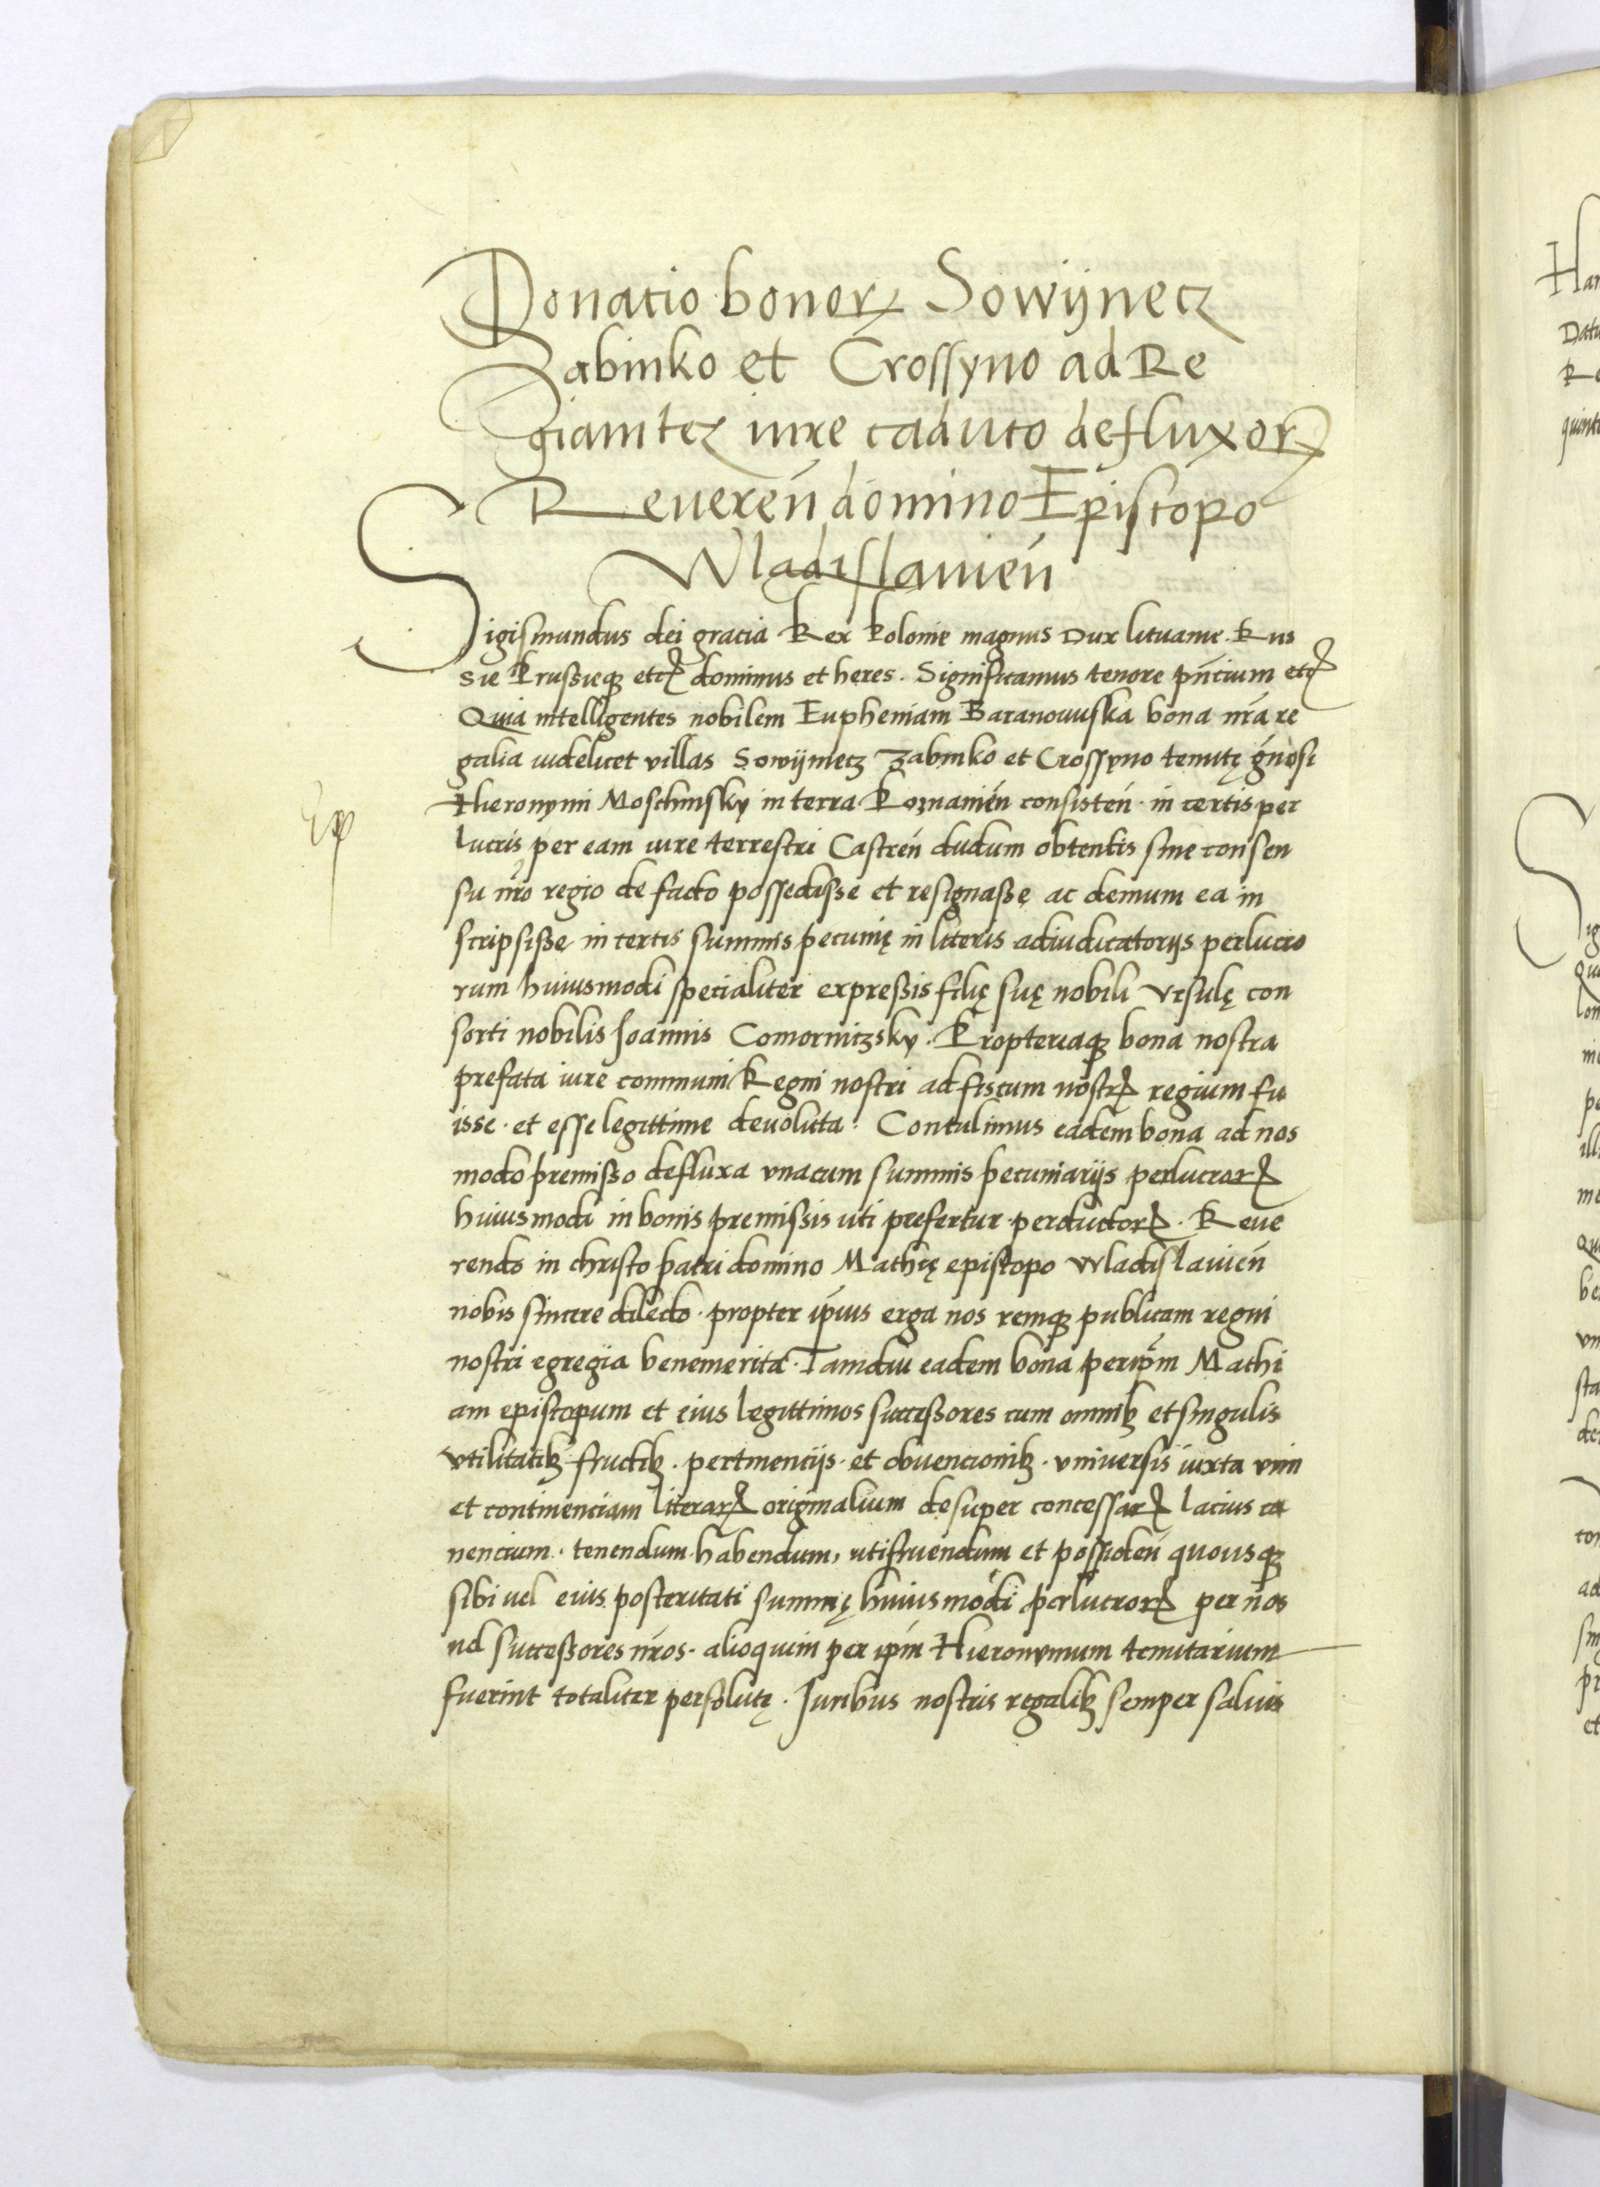 Donatio bonorꝝ Sowÿnecz
Zabinko et Crossyno ad Re
giamtez iure caduco defluxorꝝ
Reuereñ domino Episcopo
Wladislauieñ
Sigismundus dei gracia Rex Polonie magnus Dux lituanie. Rus
sie Prussieqꝫ etcꝝ dominus et heres. Significamus tenore pñcium etcꝝ
Quia intelligentes nobilem Eupheniam Baranowska bona nr̃a re
galia videlicet villas Sowÿnecz Zabinko et Crossyno tenutę gñosi
Hieronymi Moschinsky in terra Poznanieñ consisteñ. in certis per
lucris per eam iure terrestri Castreñ dudum obtentis sine consen
su nr̃o regio de facto possedisse et resignasse ac demum ea in
scripsisse in certis summis pecunię in literis adiudicatorijs perlucro
rum huiusmodi specialiter expressis filię suę nobili Vrsulę con
sorti nobilis Joannis Comorniczsky. Proptereaqꝫ bona nostra
prefata iure communi Regni nostri ad fiscum nostrꝝ regium fu
isse. et esse legittime deuoluta. Contulimus eadem bona ad nos
modo premisso defluxa vnacum summis pecuniarijs perlucrorꝝ
huiusmodi in bonis premissis uti prefertur. perductorꝝ. Reue
rendo in christo patri domino Mathię episcopo Wladislauieñ
nobis sincere dilecto. propter ip̃ius erga nos remqꝫ publicam regni
nostri egregia benemerita. Tamdiu eadem bona per ip̃m Mathi
am episcopum et eius legittimos successores cum omnibꝫ et singulis
vtilitatibꝫ fructibꝫ. pertinencijs. et obuencionibꝫ. vniuersis iuxta vim
et continenciam literarꝝ originalium desuper concessarꝝ lacius ca
nencium. tenendum. habendum, utifruendum et possideñ quousqꝫ
sibi vel eius posteritati summę huiusmodi perlucrorꝝ per nos
vel successores nr̃os. alioquin per ip̃m Hieronymum tenutarium
fuerint totaliter persolutę. Juribus nostris regalibꝫ semper saluis